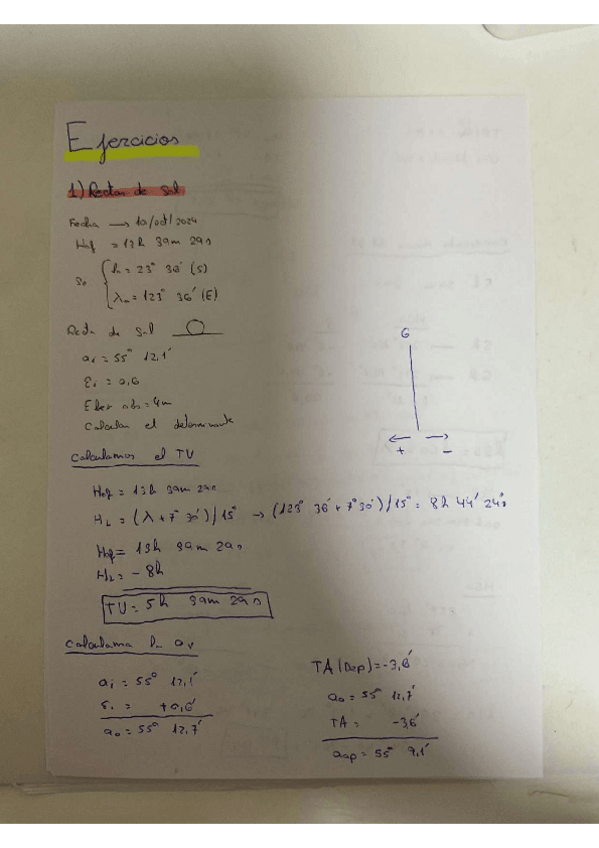 Ejercicios
1) Rectas de Sol
Fecha → 10/oct/2024
H = 13h 39m 29s
Se { l = 23° 36' (S)
λ = 123° 36' (E)
Recta de Sol
ai = 55° 12,1'
Ei = 0,6
Elev obs = 4m
Calcular el determinante
G
← →
+ -
Calculamos el TU
= 13h 39m 29s
HL = (λ + 7° 30')/15° → (123° 36' + 7° 30')/15° = 8h 44' 24s
= 13h 39m 29s
= - 8h
TU = 5h 39m 29s
Calculamos la av
ai = 55° 12,1'
εi = +0,6'
ao = 55° 12,7'
TA (Dep) = -3,6'
ao = 55° 12,7'
TA = -3,6'
aap = 55° 9,1'